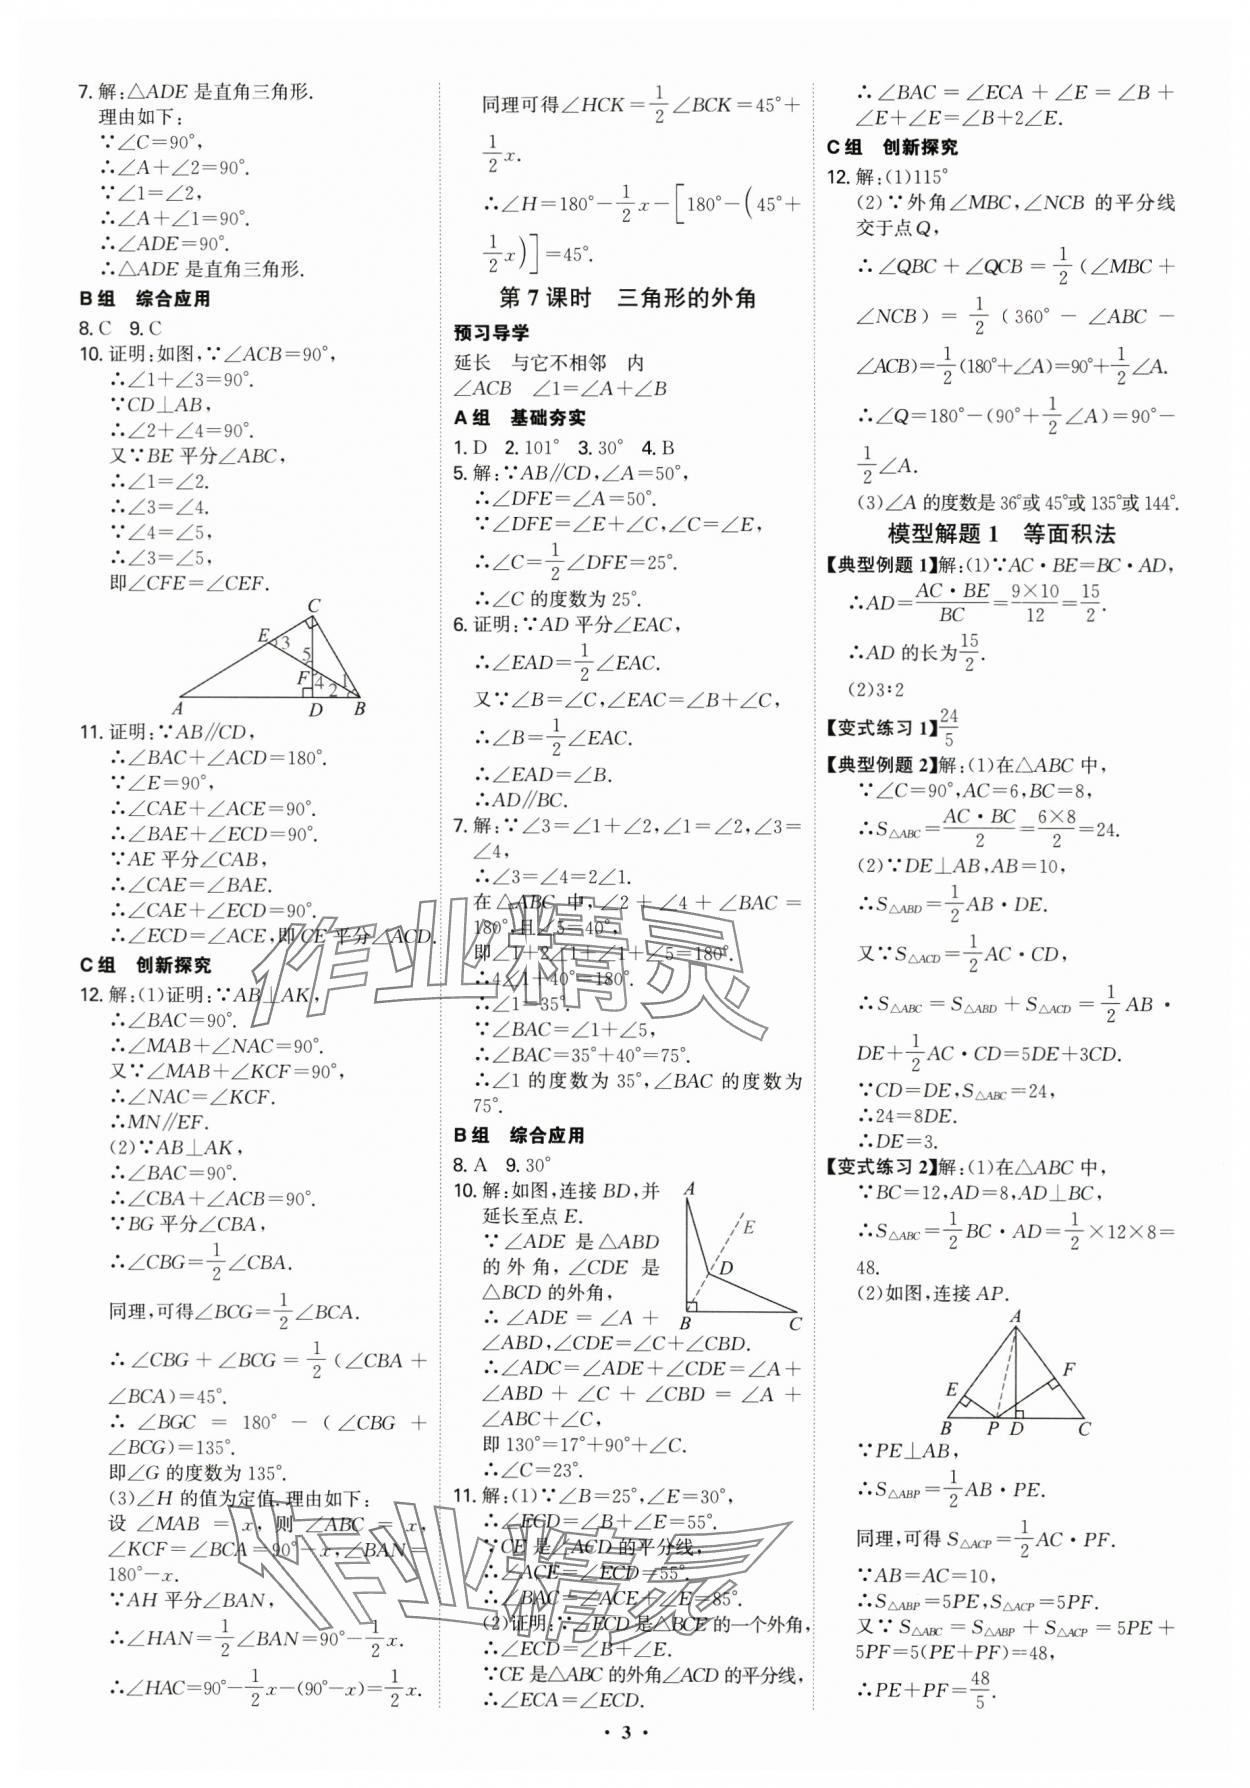 7. 解:△ADE 是直角三角形.
理由如下:
∵∠C=90°,
∴∠A+∠2=90°.
∵∠1=∠2,
∴∠A+∠1=90°.
∴∠ADE=90°.
∴△ADE 是直角三角形.
B 组 综合应用
8. C 9. C
10. 证明:如图,∵∠ACB=90°,
∴∠1+∠3=90°.
∵CD⊥AB,
∴∠2+∠4=90°.
又∵BE 平分∠ABC,
∴∠1=∠2.
∴∠3=∠4.
∵∠4=∠5,
∴∠3=∠5,
即∠CFE=∠CEF.
C
E 3
5
F 4 1
2
A D B
11. 证明:∵AB∥CD,
∴∠BAC+∠ACD=180°.
∵∠E=90°,
∴∠CAE+∠ACE=90°.
∴∠BAE+∠ECD=90°.
∵AE 平分∠CAB,
∴∠CAE=∠BAE.
∴∠CAE+∠ECD=90°.
∴∠ECD=∠ACE,即 CE 平分∠ACD.
C 组 创新探究
12. 解:(1)证明:∵AB⊥AK,
∴∠BAC=90°.
∴∠MAB+∠NAC=90°.
又∵∠MAB+∠KCF=90°,
∴∠NAC=∠KCF.
∴MN∥EF.
(2)∵AB⊥AK,
∴∠BAC=90°.
∴∠CBA+∠ACB=90°.
∵BG 平分∠CBA,
∴∠CBG=1/2∠CBA.
同理,可得∠BCG=1/2∠BCA.
∴∠CBG+∠BCG=1/2(∠CBA+
∠BCA)=45°.
∴∠BGC=180°-(∠CBG+
∠BCG)=135°.
即∠G 的度数为 135°.
(3)∠H 的值为定值.理由如下:
设∠MAB=x,则∠ABC=x,
∠KCF=∠BCA=90°-x,∠BAN=
180°-x.
∵AH 平分∠BAN,
∴∠HAN=1/2∠BAN=90°-1/2x.
∴∠HAC=90°-1/2x-(90°-x)=1/2x.
同理可得∠HCK=1/2∠BCK=45°+
1/2x.
∴∠H=180°-1/2x-[180°-(45°+
1/2x)]=45°.
第 7 课时 三角形的外角
预习导学
延长 与它不相邻 内
∠ACB ∠1=∠A+∠B
A 组 基础夯实
1. D 2. 101° 3. 30° 4. B
5. 解:∵AB∥CD,∠A=50°,
∴∠DFE=∠A=50°.
∵∠DFE=∠E+∠C,∠C=∠E,
∴∠C=1/2∠DFE=25°.
∴∠C 的度数为 25°.
6. 证明:∵AD 平分∠EAC,
∴∠EAD=1/2∠EAC.
又∵∠B=∠C,∠EAC=∠B+∠C,
∴∠B=1/2∠EAC.
∴∠EAD=∠B.
∴AD∥BC.
7. 解:∵∠3=∠1+∠2,∠1=∠2,∠3=
∠4,
∴∠3=∠4=2∠1.
在△ABC 中,∠2+∠4+∠BAC=
180°,且∠5=40°,
即∠1+2∠1+∠1+∠5=180°.
∴4∠1+40°=180°.
∴∠1=35°.
∵∠BAC=∠1+∠5,
∴∠BAC=35°+40°=75°.
∴∠1 的度数为 35°,∠BAC 的度数为
75°.
B 组 综合应用
8. A 9. 30°
10. 解:如图,连接 BD,并
延长至点 E.
∵∠ADE 是△ABD
的外角,∠CDE 是
△BCD 的外角,
∴∠ADE=∠A+
∠ABD,∠CDE=∠C+∠CBD.
A
E
D
B C
∴∠ADC=∠ADE+∠CDE=∠A+
∠ABD+∠C+∠CBD=∠A+
∠ABC+∠C,
即 130°=17°+90°+∠C.
∴∠C=23°.
11. 解:(1)∵∠B=25°,∠E=30°,
∴∠ECD=∠B+∠E=55°.
∵CE 是∠ACD 的平分线,
∴∠ACE=∠ECD=55°.
∴∠BAC=∠ACE+∠E=85°.
(2)证明:∵∠ECD 是△BCE 的一个外角,
∴∠ECD=∠B+∠E.
∵CE 是△ABC 的外角∠ACD 的平分线,
∴∠ECA=∠ECD.
∴∠BAC=∠ECA+∠E=∠B+
∠E+∠E=∠B+2∠E.
C 组 创新探究
12. 解:(1)115°
(2)∵外角∠MBC,∠NCB 的平分线
交于点 Q,
∴∠QBC+∠QCB=1/2(∠MBC+
∠NCB)=1/2(360°-∠ABC-
∠ACB)=1/2(180°+∠A)=90°+1/2∠A.
∴∠Q=180°-(90°+1/2∠A)=90°-
1/2∠A.
(3)∠A 的度数是 36°或 45°或 135°或 144°.
模型解题 1 等面积法
【典型例题 1】解:(1)∵AC·BE=BC·AD,
∴AD=AC·BE/BC=9×10/12=15/2.
∴AD 的长为15/2.
(2)3∶2
【变式练习 1】24/5
【典型例题 2】解:(1)在△ABC 中,
∵∠C=90°,AC=6,BC=8,
∴S△ABC=AC·BC/2=6×8/2=24.
(2)∵DE⊥AB,AB=10,
∴S△ABD=1/2AB·DE.
又∵S△ACD=1/2AC·CD,
∴S△ABC=S△ABD+S△ACD=1/2AB·
DE+1/2AC·CD=5DE+3CD.
∵CD=DE,S△ABC=24,
∴24=8DE.
∴DE=3.
【变式练习 2】解:(1)在△ABC 中,
∵BC=12,AD=8,AD⊥BC,
∴S△ABC=1/2BC·AD=1/2×12×8=
48.
(2)如图,连接 AP.
A
F
E
B P D C
∵PE⊥AB,
∴S△ABP=1/2AB·PE.
同理,可得 S△ACP=1/2AC·PF.
∵AB=AC=10,
∴S△ABP=5PE,S△ACP=5PF.
又∵S△ABC=S△ABP+S△ACP=5PE+
5PF=5(PE+PF)=48,
∴PE+PF=48/5.
· 3 ·
作业精灵
作业精灵